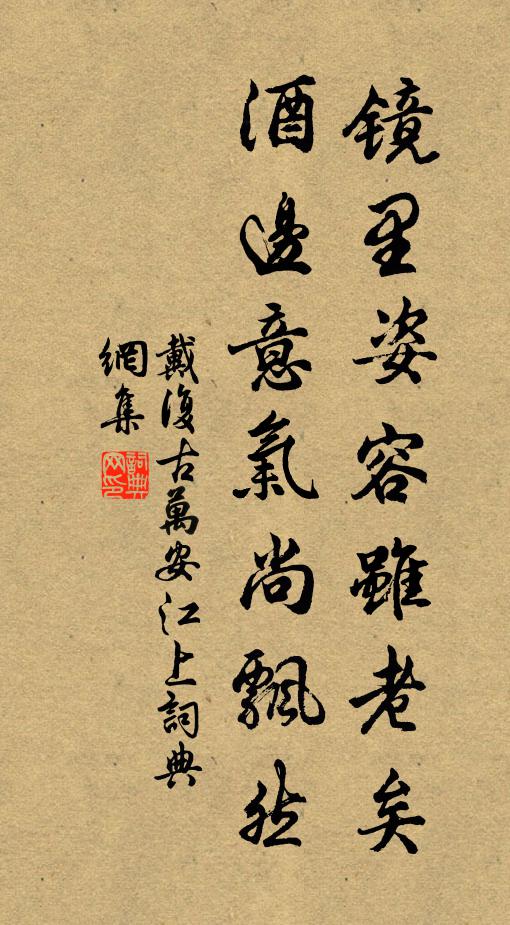 镜里姿容雖老矣
酒邊意氣尚飄然
戴復古萬安江上詞典
網集
詞典网印